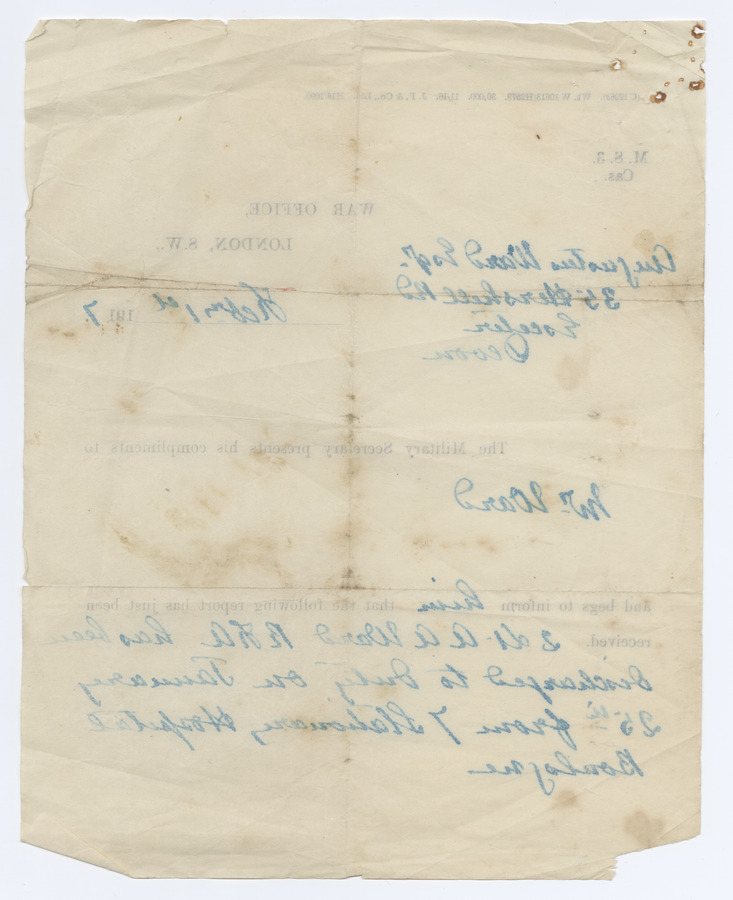 Wt. W 30,000. 11/16. J. P. & Co., Ltd.
M. S. 3.
Cas.
WAR OFFICE,
LONDON, S.W.,
Augustus Ward Esqr.
35 Hershell Rd
Exeter
Devon
Feby 1st 1917
The Military Secretary presents his compliments to
Mr. Ward
and begs to inform him that the following report has just been
received. 2 Lt A A Ward R F A has been
discharged to Duty on January
25th from 7 Stationary Hospital
Boulogne